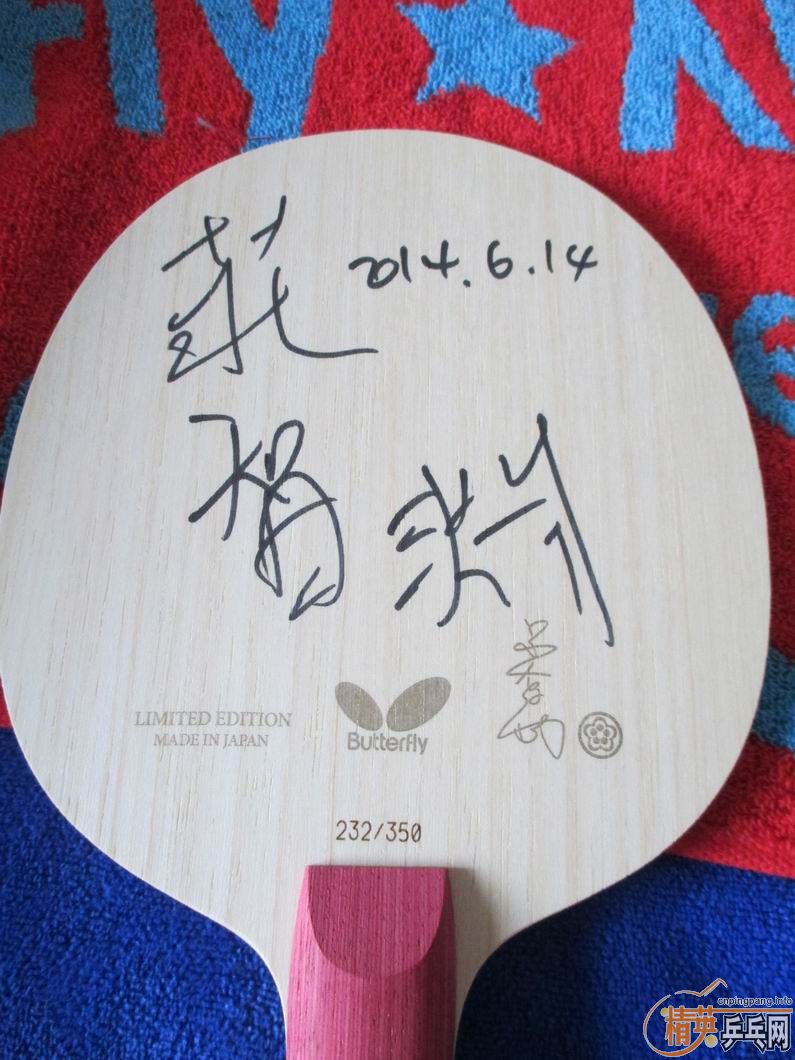 莊 2014.6.14
智淵
LIMITED EDITION
MADE IN JAPAN
Butterfly
232/350
cnpingpang.info
精英乒乓网